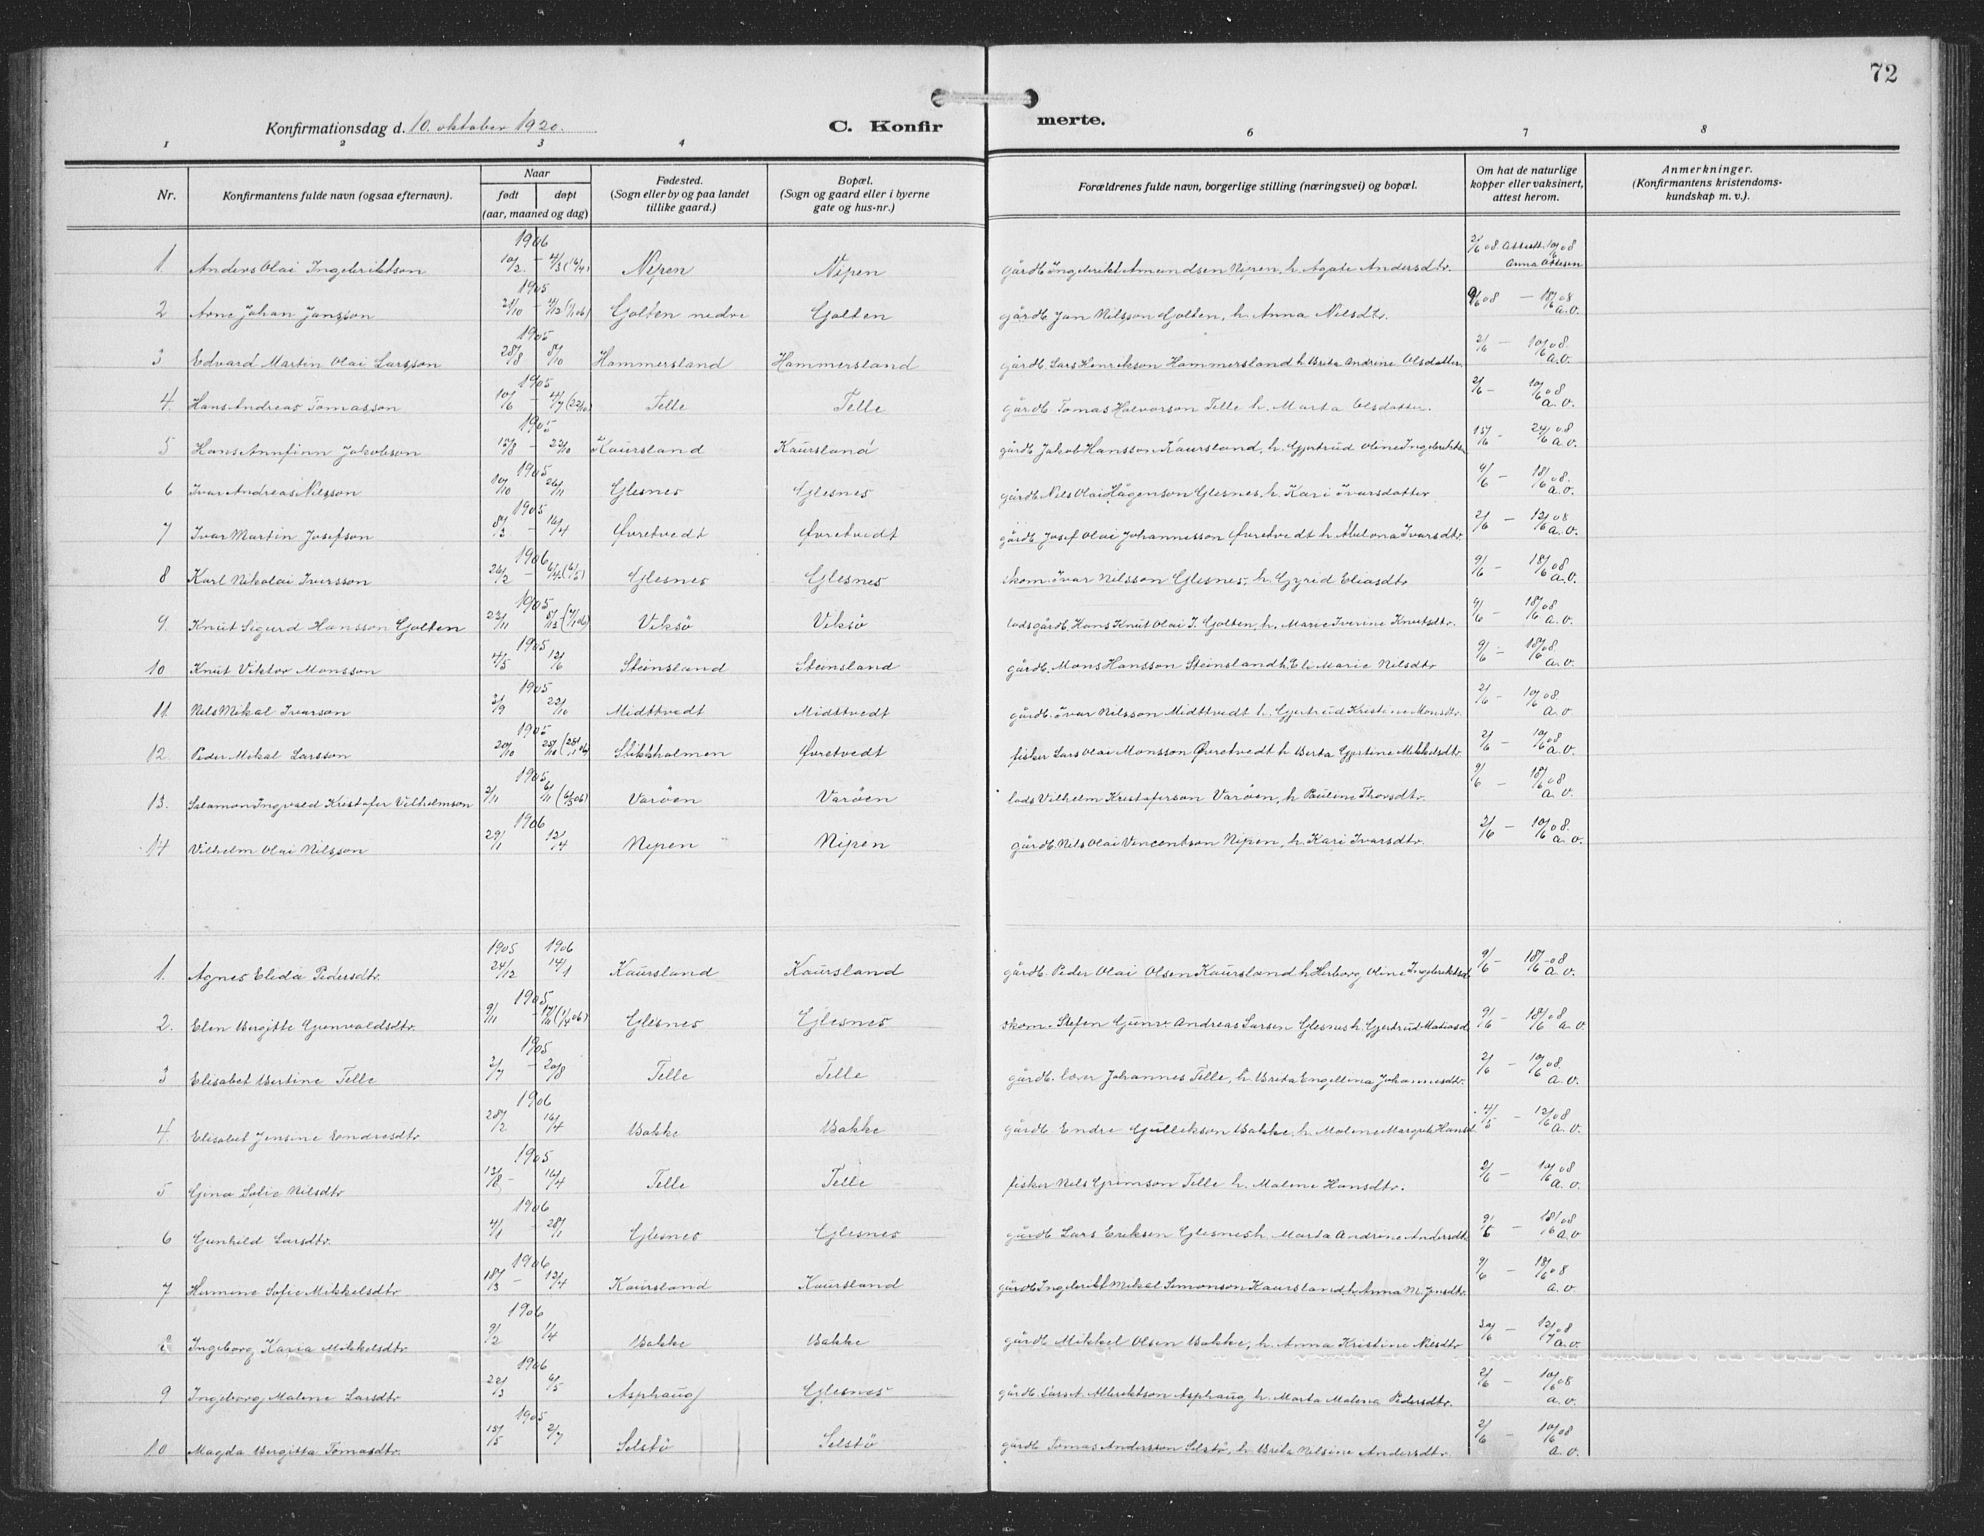 72
Konfirmationsdag d. 10. oktober 1920.
C. Konfirmerte.
1 2 3 4 6 7 8
Nr.
Konfirmantens fulde navn (ogsaa efternavn).
Naar
født
døpt
(aar, maaned og dag)
Fødested.
(Sogn eller by og paa landet
tillike gaard.)
Bopæl.
(Sogn og gaard eller i byerne
gate og hus-nr.)
Forældrenes fulde navn, borgerlige stilling (næringsvei) og bopæl.
Om hat de naturlige
kopper eller vaksinert,
attest herom.
Anmerkninger.
(Konfirmantens kristendoms-
kundskap m. v.).
1906
1. Anders Olai Ingebriktson 10/2 – 4/3 (16/4) Nipen Nipen gårdb. Ingebrikt Amundsen Nipen, h. Agate Andersdtr. 2/6 08 Attest. 10/6 08 Anna Ottesen
1905
2 Arne Johan Jansson 21/10 – 4/12 (1/1 06) Golten nedre Golten gårdb. Jan Nilsson Golten, h. Anna Nilsdtr. 9/6 08 – 18/6 08 A.O.
1905
3 Edvard Martin Olai Larsson 28/8 8/10 Hammersland Hammersland gårdb. Lars Henrikson Hammersland h. Brita Andrine Olsdatter 2/6 – 10/6 08 A.O.
1905
4. Hans Andreas Tomasson 10/6 – 4/7 (22/10) Telle Telle gårdb. Tomas Halvorson Telle h. Marta Olsdatter. 2/6 – 10/6 08 A.O.
1905
5 Hans Annfinn Jakobson 15/8 – 22/10 Kaursland Kaursland gårdb. Jakob Hansson Kaursland, h. Gjertrud Oline Ingebriktsd. 15/6 – 24/6 08 A.O.
1905
6 Ivar Andreas Nilsson 10/10 26/11 Glesnes Glesnes gårdb. Nils Olai Hågenson Glesnes, h. Kari Ivarsdatter 9/6 – 18/6 08. A.O.
1905
7 Ivar Martin Josefson 8/3 – 16/4 Øvretvedt Øvretvedt gårdb. Josef Olai Johannesson Øvretvedt h. Abelona Ivarsdtr. 2/6 – 12/6 08 A.O.
1906
8 Karl Nikolai Iversson 26/2 – 6/4 (6/5) Glesnes Glesnes Skom. Ivar Nilsson Glesnes, h. Gyrid Eliasdtr 9/6 – 18/6 08 A.O.
1905
9. Knut Sigurd Hansson Golten 23/11 8/12 (7/1 06) Viksö Viksö lods gårdb. Hans Knut Olai I. Golten, h. Marie Iverine Knutsdtr. 9/6 – 18/6 08 A.O.
1905
10 Knut Viktor Monsson 4/5 12/6 Steinsland Steinsland gårdb. Mons Hansson Steinsland h. Eli Marie Nilsdtr 9/6 – 18/6 08. A.O.
1905
11. Nils Mikal Ivarson 2/9 22/10 Midttvedt Midttvedt gårdb. Ivar Nilsson Midttvedt h. Gjertrud Kristene Monsdtr. 2/6 – 10/6 08 A.O.
1905
12. Peder Mikal Larsson 20/10 Øvretvedt fisker Lars Olai Monsson Øvretvedt h. Berta Gjertine Mikkelsdtr 2/6 – 10/6 08 A.O.
1905
13. Salamon Ingvald Kristofer Vilhelmson 2/11 6/11 (6/3 06) Varöen Varöen lods Vilhelm Kristoferson Varöen, h. Pauline Thorsdtr. 9/6 – 18/6 08 A.O.
1906
14 Vilhelm Olai Nilsson 29/1 12/4 Nipen Nipen gårdb. Nils Olai Vincentson Nipen, h. Kari Ivarsdtr. 2/6 – 10/6 08. A.O.
1905 1906
1. Agnes Elida Pedersdtr. 24/12 14/1 Kaursland Kaursland gårdb. Peder Olai Olsen Kaursland h. Herborg Oline Ingebriktsd. 9/6 – 18/6 08 A.O.
1905
2. Elen Bergitte Gunvaldsdtr. 9/11 Glesnes Glesnes skom. Stefen Gunv. Andreas Larsen Glesnes h. Gjertrud Matiasd. 9/6 – 18/6 08 A.O.
1905
3 Elisabet Bertine Telle 2/7 – 20/8 Telle Telle gårdb. lærer Johannes Telle, h. Brita Engellena Johannesdtr. 2/6 – 10/6 08 A.O.
1906
4. Elisabet Jensine Endresdtr. 28/2 16/4 Bakke Bakke gårdb. Endre Gullekson Bakke, h. Malene Margrete Hansd. 4/5 – 12/6 08 A.O.
1905
5 Gina Sofie Nilsdtr 12/8 – 16/4 Telle Telle fisker Nils Grimson Telle h. Malene Hansdtr. 2/6 – 10/6 08 A.O.
1906
6 Gunhild Larsdtr. 4/1 – 28/1 Glesnes Glesnes gårdb. Lars Eriksen Glesnes h. Marta Andrine Andersdtr. 9/6 – 18/6 08 A.O
1906
7 Hermine Sofie Mikkelsdtr 18/3 – 12/4 Kaursland Kaursland gårdb. Ingebrikt Mikal Simonson Kaursland, h. Anna M. Jensdtr. 9/6 – 18/6 08 A.O.
1906
8 Ingeborg Karia Mikkelsdtr 9/2 1/4 Bakke Bakke gårdb. Mikkel Olsen Bakke, h. Anna Kristine Nilsdtr 30/6 – 12/7 08 A.O.
1906
9 Ingeborg Malene Larsdtr 22/3 6/5 Asphaug Glesnes gårdb. Lars A. Albriktson Asphaug h. Marta Malena Pedersdtr. 2/6 – 10/6 08 A.O.
1905
10 Magda Bergitta Tomasdtr. 15/5 2/7 Selstö Selstö gårdb. Tomas Andersson Selstö, h. Brita Nilsine Andersdtr. 2/6 – 10/6 08 A.O.